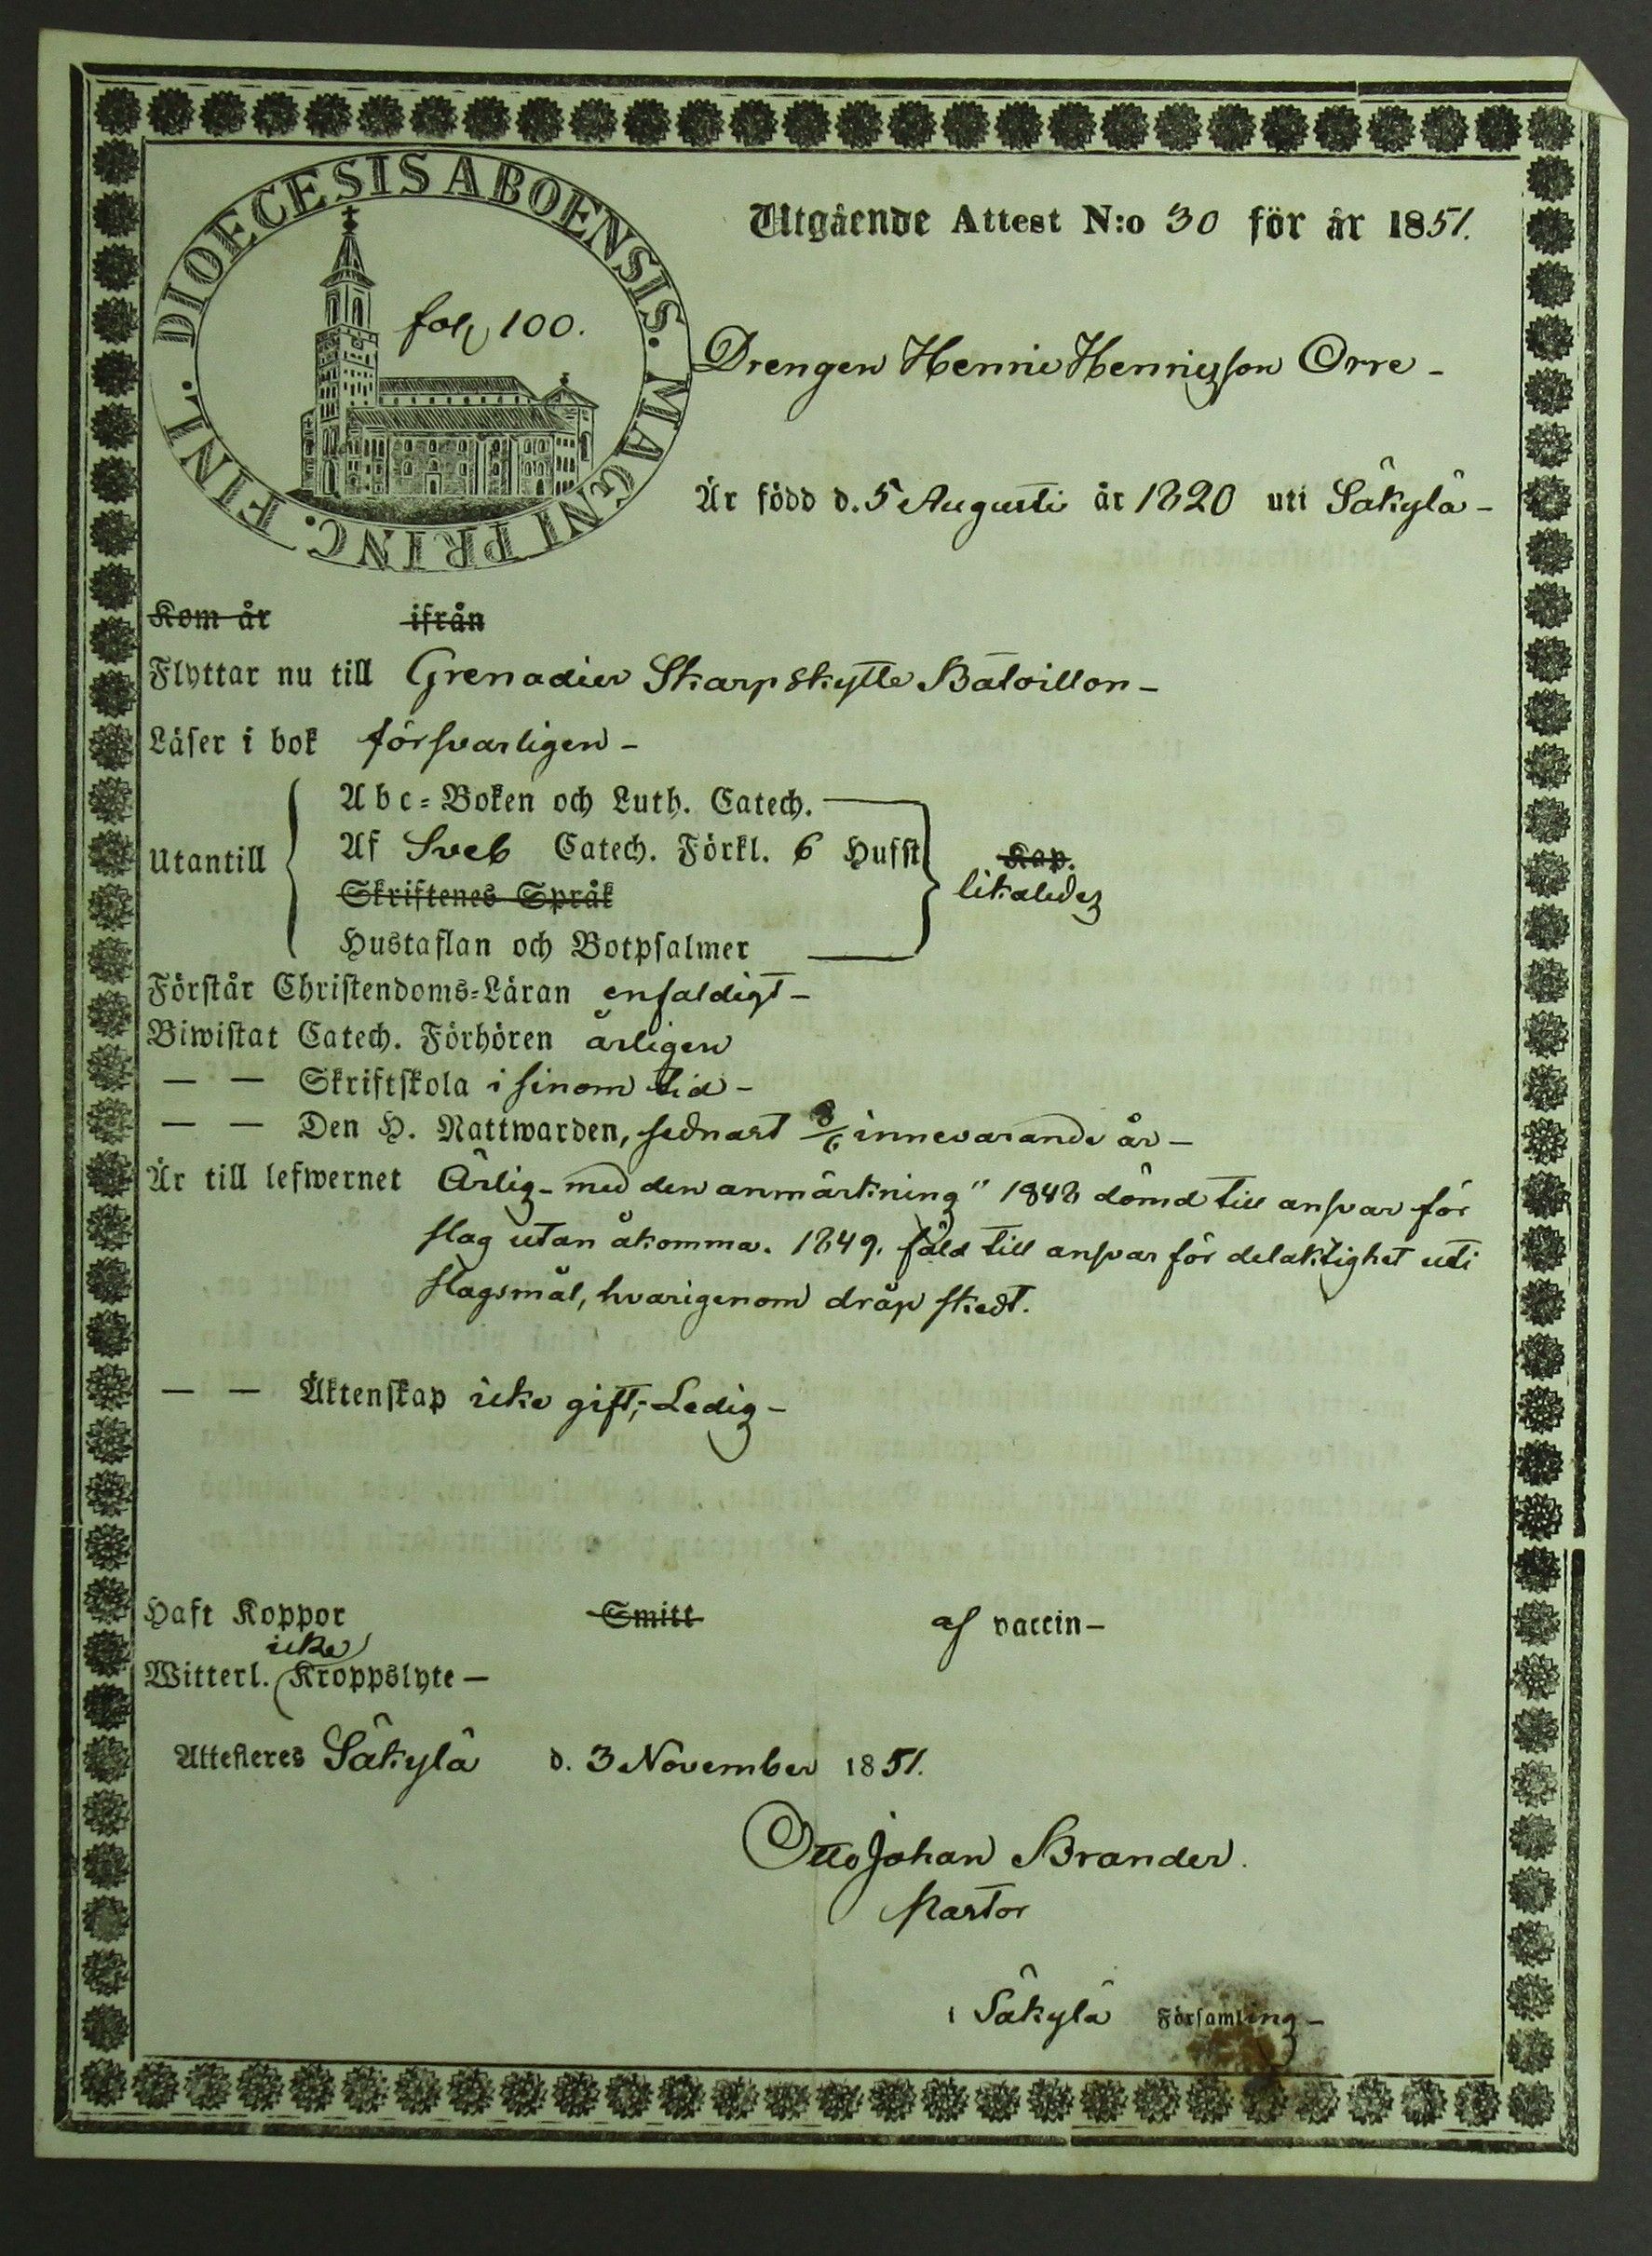 DIOECESIS ABOENSIS. MAGNI PRINC. FINL.
fol, 100.
Utgående Attest N:o 30 för år 1851.
Drengen Henric Henricsson Orre -
Är född d. 5 Augusti år 1820 uti Säkylä -
Kom år ifrån
Flyttar nu till Grenadier Skarpskytte Bataillon -
Läser i bok försvarligen -
Utantill
Abc-Boken och Luth. Catech.
Af Sveb Catech. Förkl. 6 Hufst
Skriftenes Språk
Hustaflan och Botpsalmer
Kap.
likaledes
Förstår Christendoms-Läran enfaldigt -
Biwistat Catech. Förhören årligen
— — Skriftskola i sinom tid -
— — Den H. Nattwarden, sednast 8/6 innevarande år -
Är till lefwernet Ärlig - med den anmärkning " 1848 dömd till ansvar för
slag utan åkomma. 1849. fäld till ansvar för delaktighet uti
slagsmål, hvarigenom dråp skedt.
— — Äktenskap icke gift; - Ledig -
Haft Koppor Smitt af vaccin -
icke
Witterl. Kroppslyte —
Attesteres Säkylä d. 3 November 1851.
Otto Johan Brander.
Pastor
i Säkylä Församling -